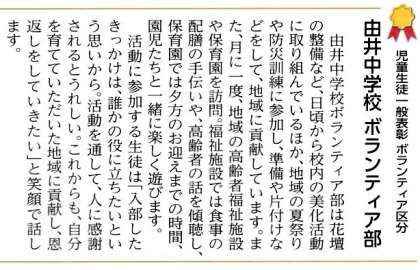 児童生徒一般表彰 ボランティア区分
由井中学校 ボランティア部
　由井中学校ボランティア部は花壇
の整備など、日頃から校内の美化活動
に取り組んでいるほか、地域の夏祭り
や防災訓練に参加し、準備や片付けな
どをして、地域に貢献しています。ま
た、月に一度、地域の高齢者福祉施設
や保育園を訪問。福祉施設では食事の
配膳の手伝いや、高齢者の話を傾聴し、
保育園では夕方のお迎えまでの時間、
園児たちと一緒に楽しく遊びます。
　活動に参加する生徒は「入部した
きっかけは、誰かの役に立ちたいとい
う思いから。活動を通して、人に感謝
されるとうれしい。これからも、自分
を育てていただいた地域に貢献し、恩
返しをしていきたい」と笑顔で話し
ます。